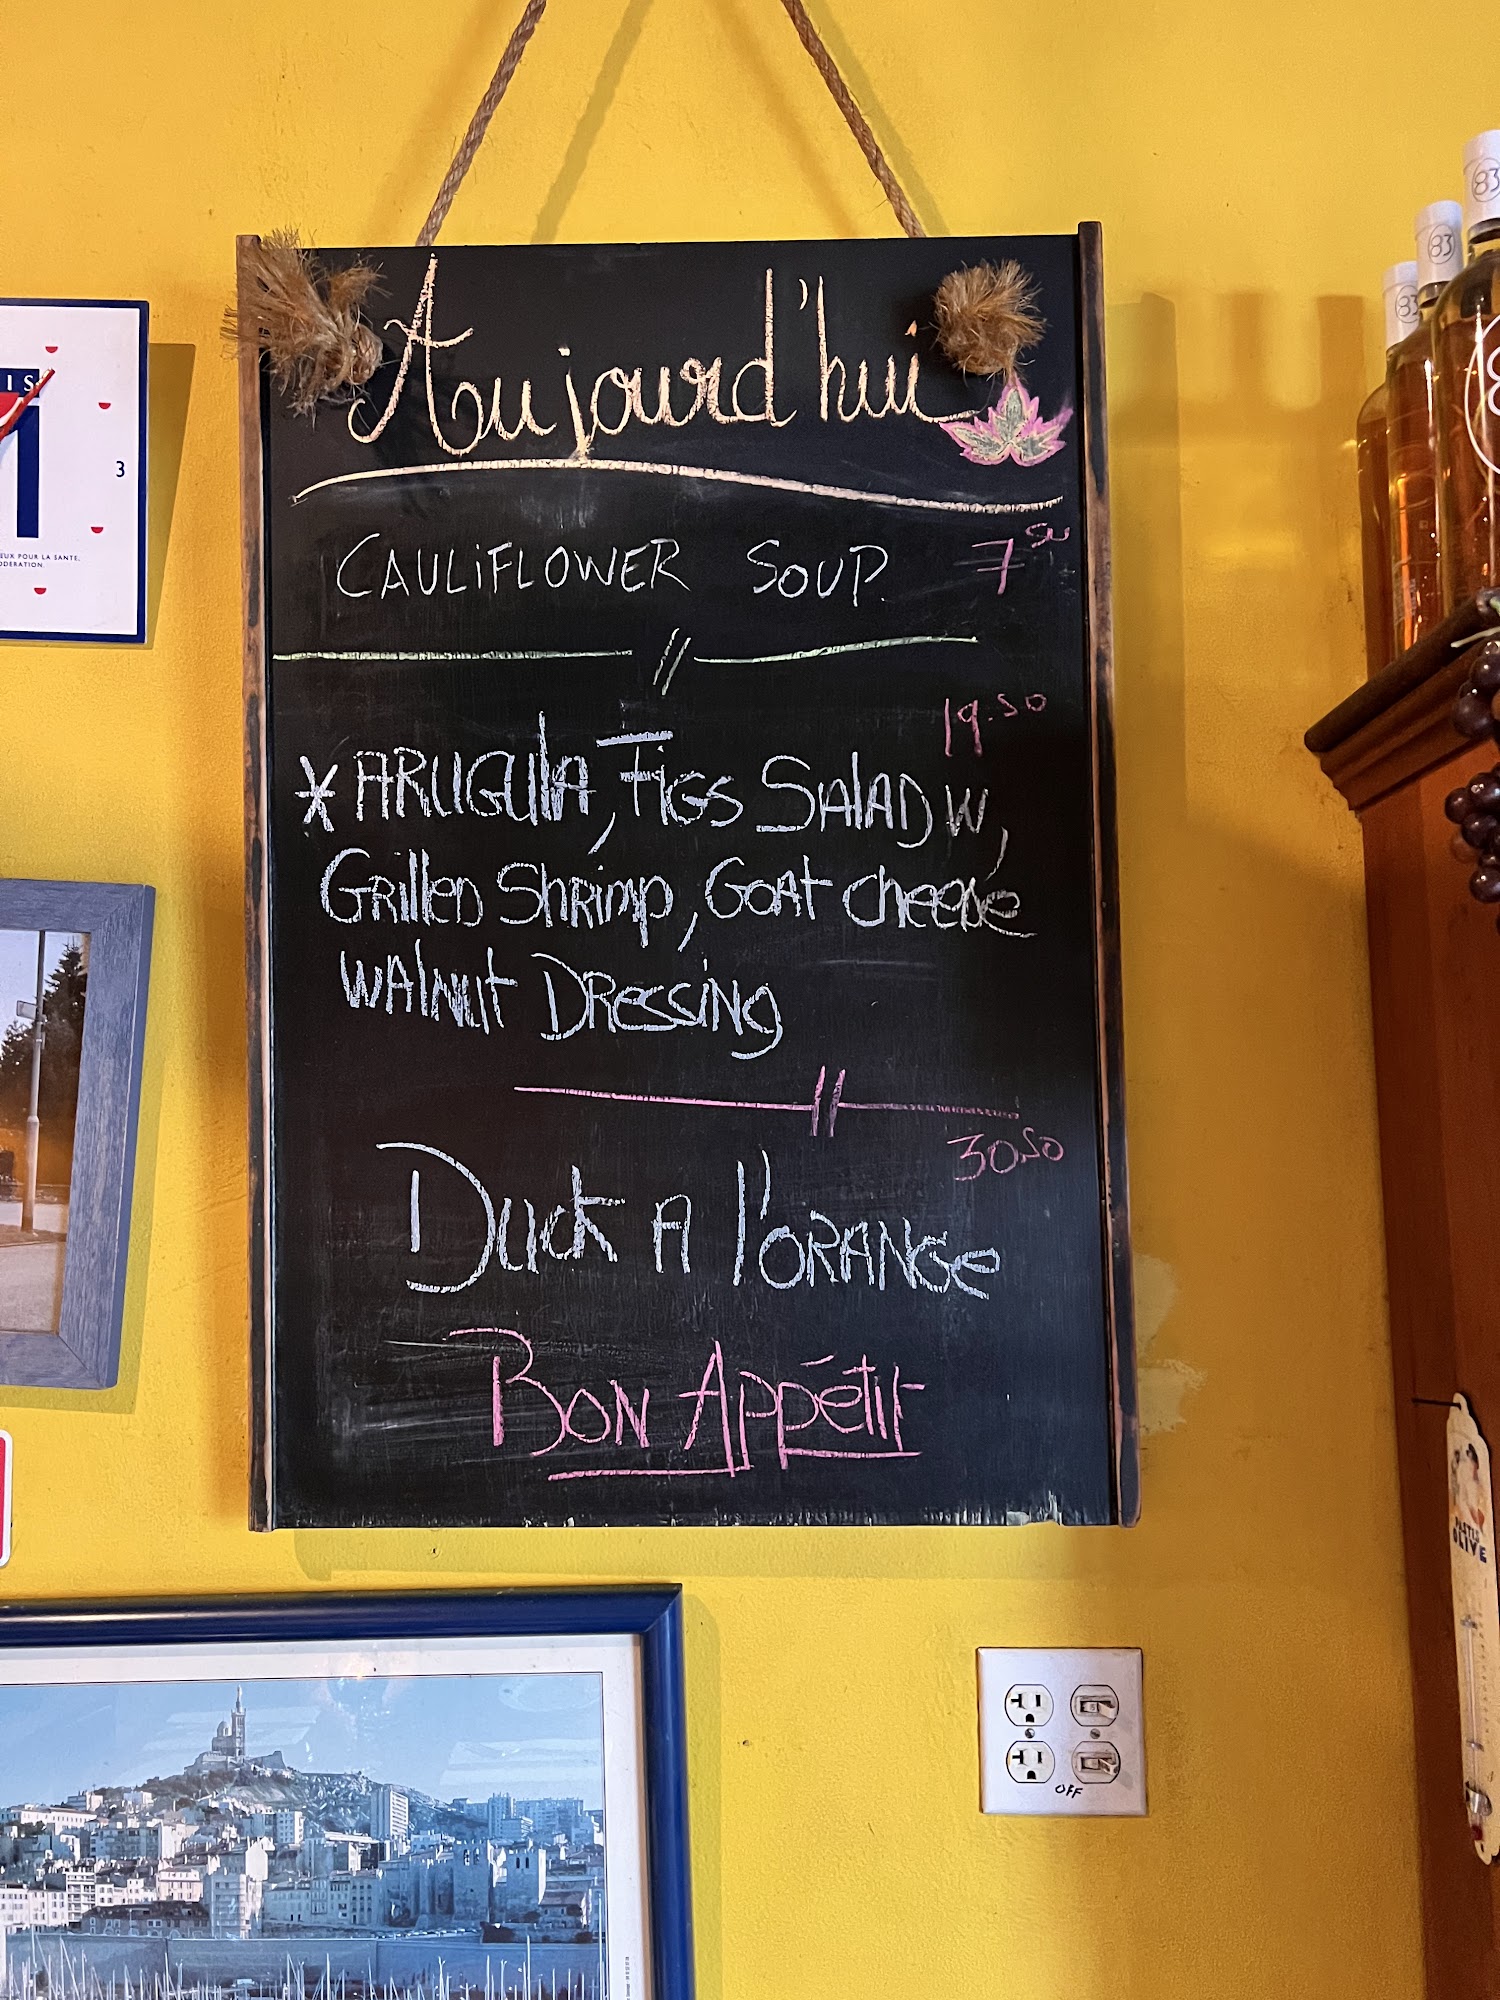 Aujourd'hui
CAULIFLOWER SOUP 7 50
19.50
* ARUGULA, FIGS SALAD W,
GRILLED SHRIMP, GOAT CHEESE
WALNUT DRESSING
30.50
DUCK A l'ORANGE
BON APPÉTIT
IS
51
3
EUX POUR LA SANTE,
ODERATION.
83
83
83
OLIVE
OFF